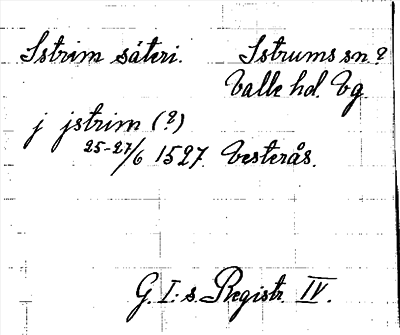 Istrim säteri. Istrums sn.?
Valle hd. Vg.
j jstrim (?)
25-27/6 1527. Vesterås.
G. I:s Registr. IV.